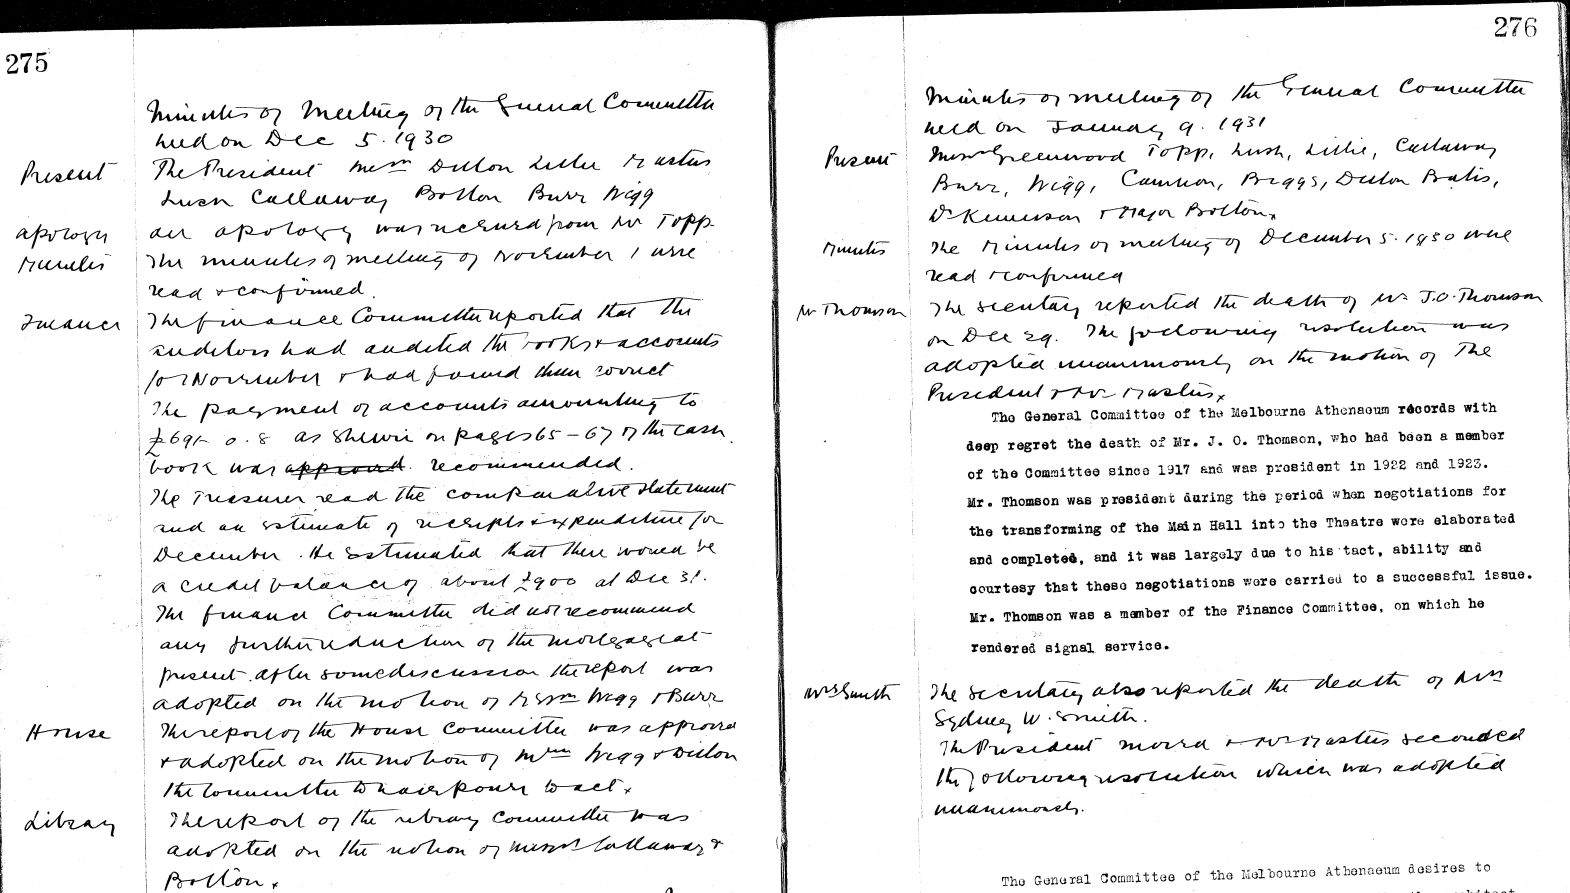 275
Minutes of Meeting of the General Committee
held on Dec 5. 1930
Present
The President Messrs Dillon Lillie Masters
Lush Callaway Bolton Burr Wigg
Apology
An apology was received from Mr Topp
Minutes
The minutes of meeting of November 1 were
read & confirmed.
Finance
The Finance Committee reported that the
auditors had audited the books & accounts
for November & had found them correct
The payment of accounts amounting to
0. 8 as shewn on pages 65 - 67 of the cash
book was approved. recommended.
The Treasurer read the comparative statement
and an estimate of receipts & expenditure for
December. He estimated that there would be
a credit balance of about £900 at Dec 31.
The Finance Committee did not recommend
any further reduction of the mortgage at
present. After some discussion the report was
adopted on the motion of Messrs Wigg & Burr
House
The report of the House Committee was approved
& adopted on the motion of Messrs Wigg & Dillon
the Committee to have power to act.
Library
The report of the Library Committee was
adopted on the motion of Messrs Callaway &
Bolton.
276
Minutes of meeting of the General Committee
held on January 9. 1931
Present
Messrs Greenwood Topp, Lush, Lillie, Callaway
Burr, Wigg, Cameron, Briggs, Dillon Bates,
Dr & Major Bolton.
Minutes
The Minutes of meeting of December 5. 1930 were
read & confirmed
Mr Thomson
The Secretary reported the death of Mr J.O. Thomson
on Dec 29. The following resolution was
adopted unanimously on the motion of The
President & Mr Masters.
The General Committee of the Melbourne Athenaeum records with
deep regret the death of Mr. J. O. Thomson, who had been a member
of the Committee since 1917 and was president in 1922 and 1923.
Mr. Thomson was president during the period when negotiations for
the transforming of the Main Hall into the Theatre were elaborated
and completed, and it was largely due to his tact, ability and
courtesy that these negotiations were carried to a successful issue.
Mr. Thomson was a member of the Finance Committee, on which he
rendered signal service.
Mrs Smith
The Secretary also reported the death of Mrs
Sydney W. Smith.
The President moved & Mr Masters seconded
the following resolution which was adopted
unanimously.
The General Committee of the Melbourne Athenaeum desires to